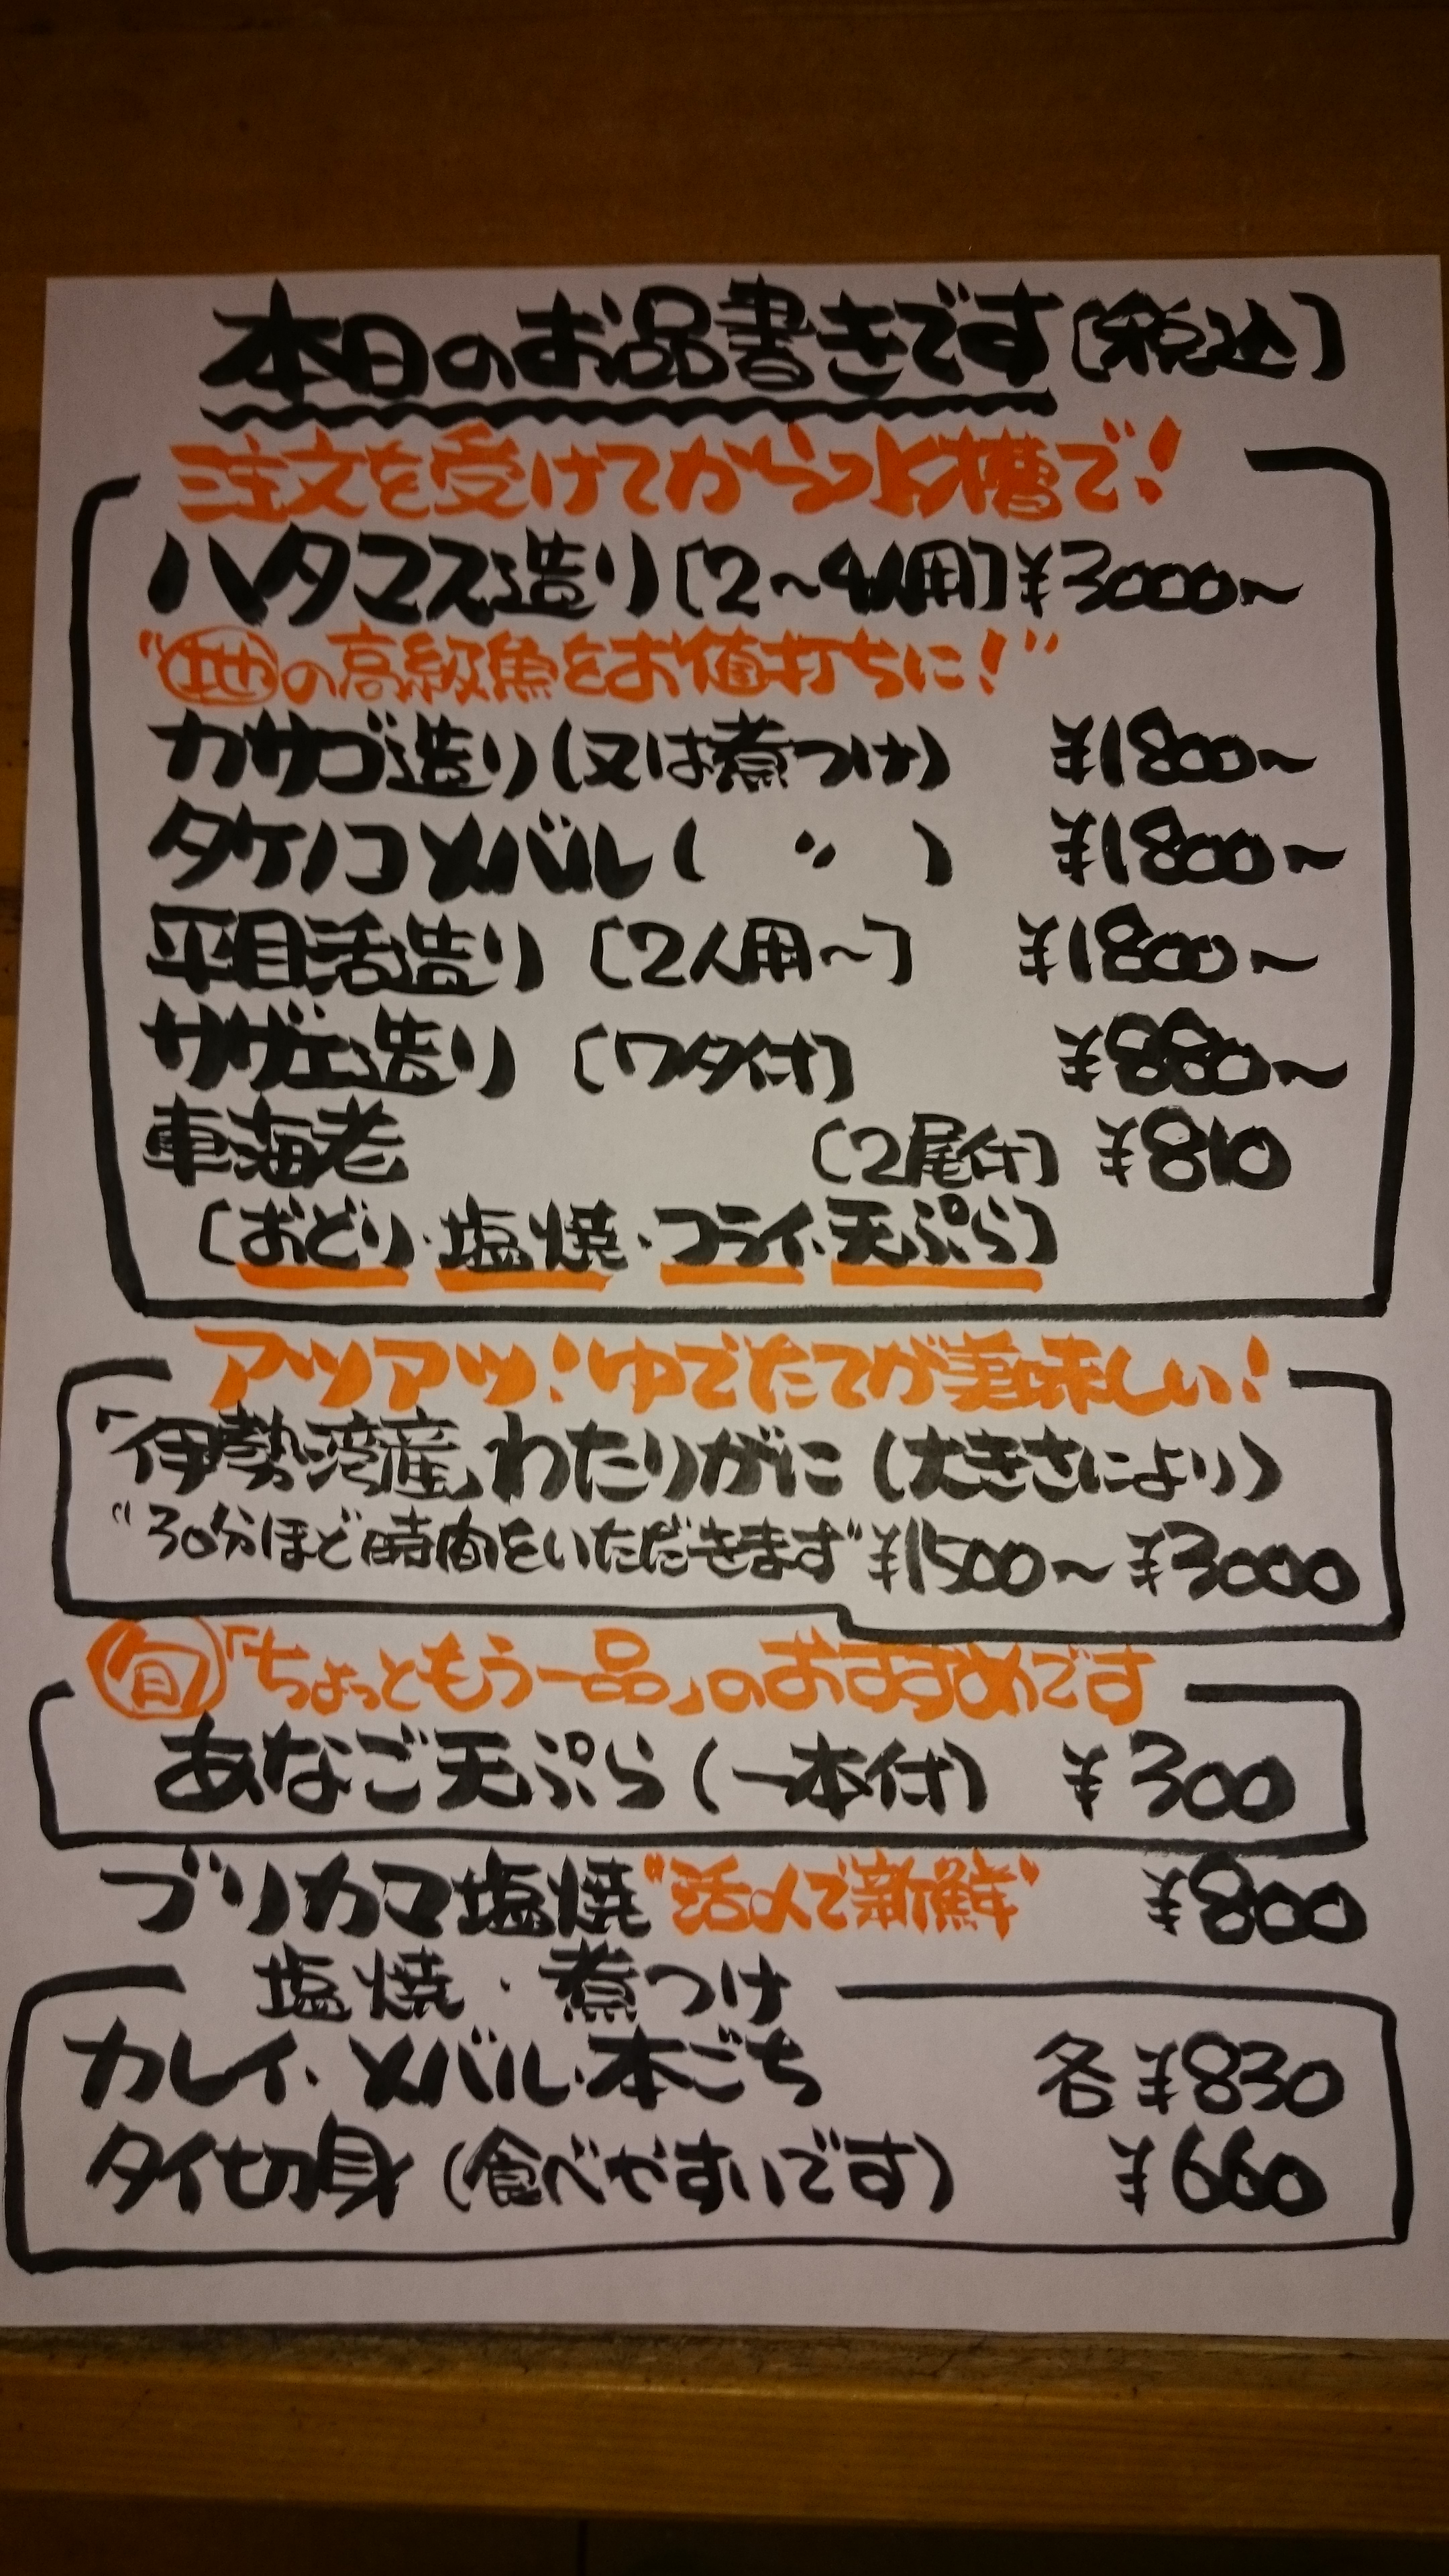 本日のお品書きです〔税込〕
注文を受けてから水槽で!
ハタマス造り〔2~4人用〕¥3000~
"地の高級魚をお値打ちに!"
カサゴ造り(又は煮つけ) ¥1800~
タケノコメバル( 〃 ) ¥1800~
平目活造り〔2人用~〕 ¥1800~
サザエ造り〔ワタ付〕 ¥880~
車海老 〔2尾付〕 ¥810
〔おどり・塩焼・フライ・天ぷら〕
アツアツ!ゆでたてが美味しい!
「伊勢湾産」わたりがに(大きさにより)
"30分ほど時間をいただきます" ¥1500~¥3000
旬「ちょっともう一品」のおすすめです
あなご天ぷら(一本付) ¥300
ブリカマ塩焼"活〆で新鮮" ¥800
塩焼・煮つけ
カレイ・メバル・本ごち 各¥830
タイ切身(食べやすいです) ¥660